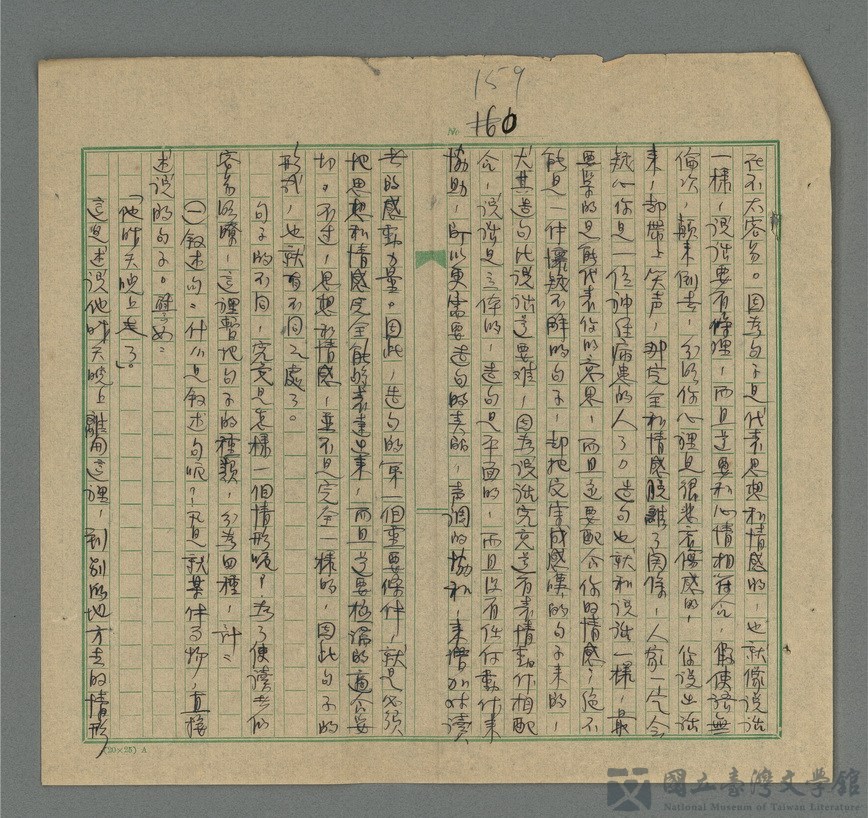 159
160
No
花不太容易。因為句子是代表思想和情感的,也就像說話
一樣,說話要有條理,而且還要和心情相符合,假使語無
倫次,顛来倒去,分明你心裡是很悲哀傷感的,你說出話
来,却帶上笑声,那完全和情感脫離了関係,人家一定会
疑心你是一位神経病患的人了。造句也就和說話一樣,最
要緊的是能代表你的意思,而且还要配合你的情感,絕不
能是一件懷疑不解的句子,却把它寫成感嘆的句子来的,
尤其造句比說話還要难,因為說話究竟還有表情動作相配
合,說話是立体的,造句是平面的,而且沒有任何動作来
協助,所以更需要造句的美的,声調的協和,来增加对讀
者的感動力量。因此,造句的第一個重要條件,就是必須
把思想和情感完全能夠表達出来,而且還要極端的適合妥
切。不过,思想和情感,並不是完全一樣的,因此句子的
形式,也就有不同之處了。
句子的不同,究竟是怎樣一個情形呢?為了使讀者們
容易明瞭,這裡暫把句子的種類,分為四種,計:
㈠敘述句。什么是敘述句呢?就是就某件事物,直接
述說的句子。譬如:
「他昨天晚上走了」。
這是述說他昨天晚上離開這裡,到別的地方去的情形
(20×25) A
國立臺灣文學館
National Museum of Taiwan Literature